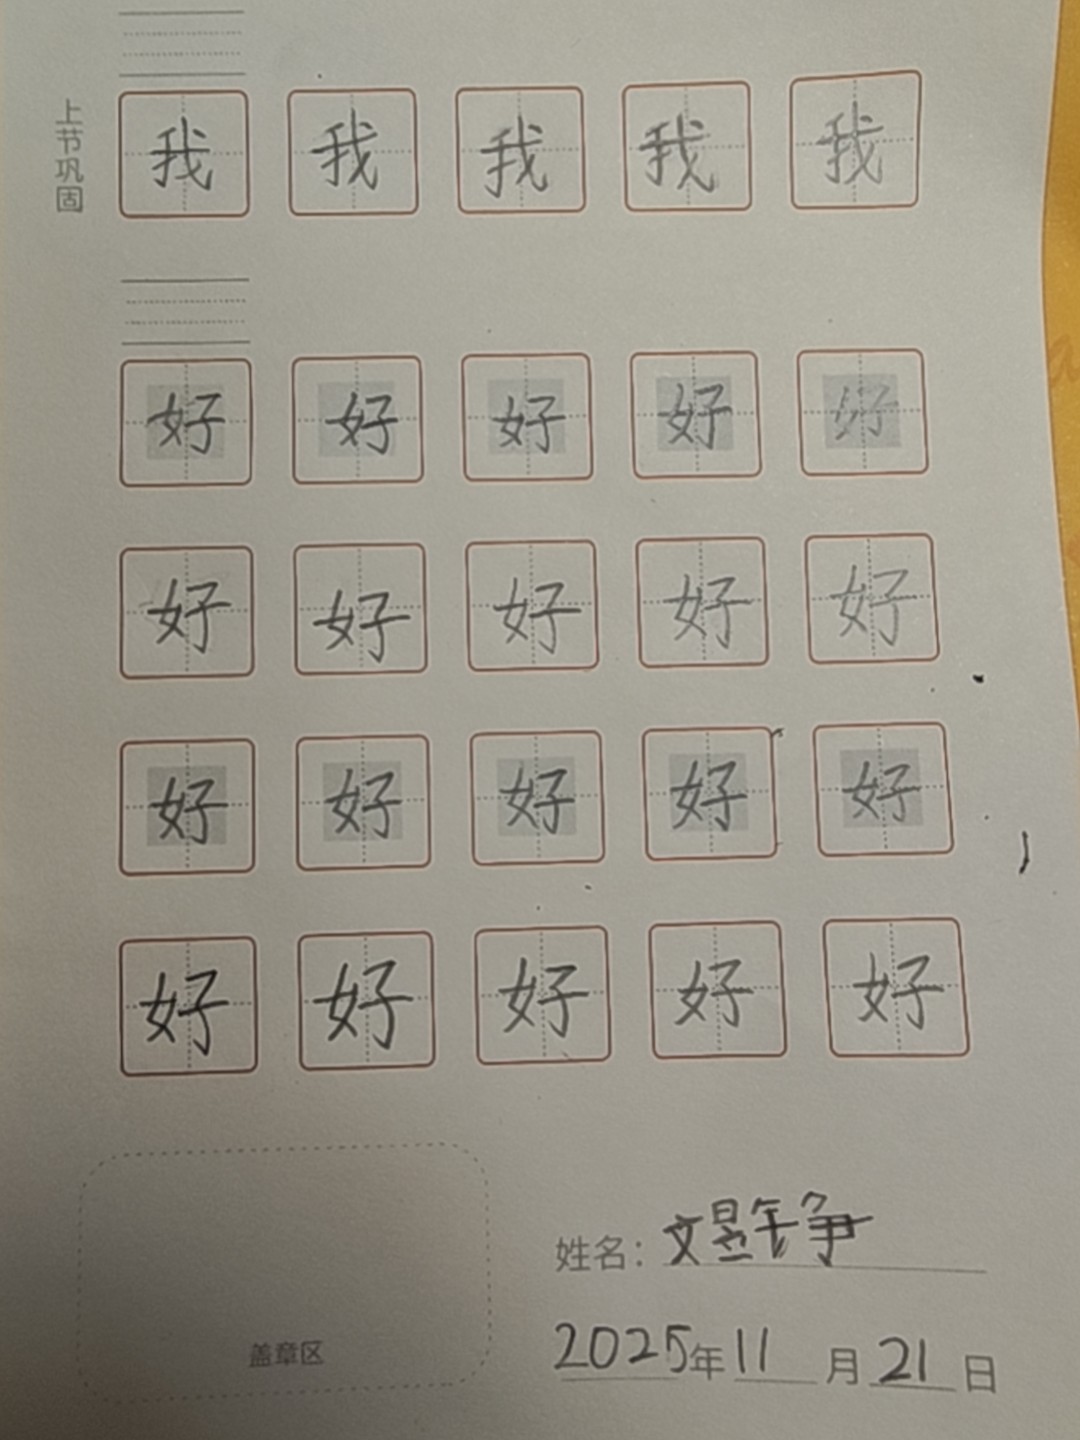 上节巩固
我 我 我 我 我
好 好 好 好 好
好 好 好 好 好
好 好 好 好 好
好 好 好 好 好
姓名：文昱
2025年11月21日
盖章区